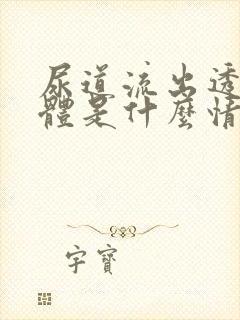 尿道流出透
體是什麼情
字寶